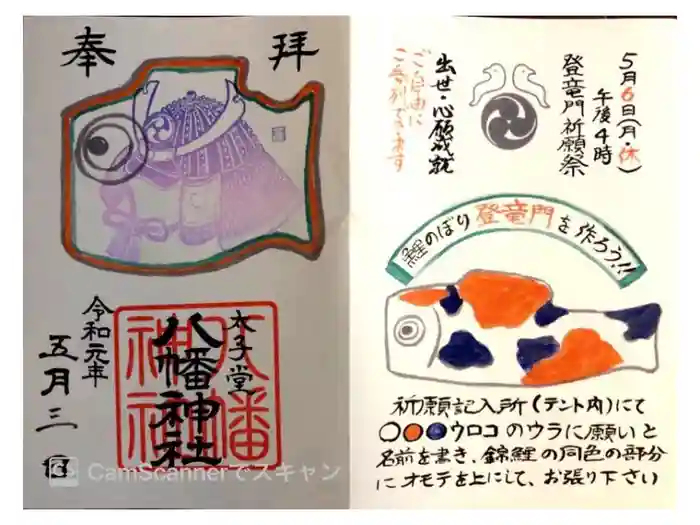 奉拝
太子堂
八幡神社
令和元年
五月三日
八幡神社
CamScannerでスキャン
5月6日(月・休)
午後4時
登竜門祈願祭
出世・心願成就
ご自由に
ご参列できます
鯉のぼり登竜門を作ろう!!
祈願記入所(テント内)にて
ウロコのウラに願いと
名前を書き、錦鯉の同色の部分
にオモテを上にして、お張り下さい